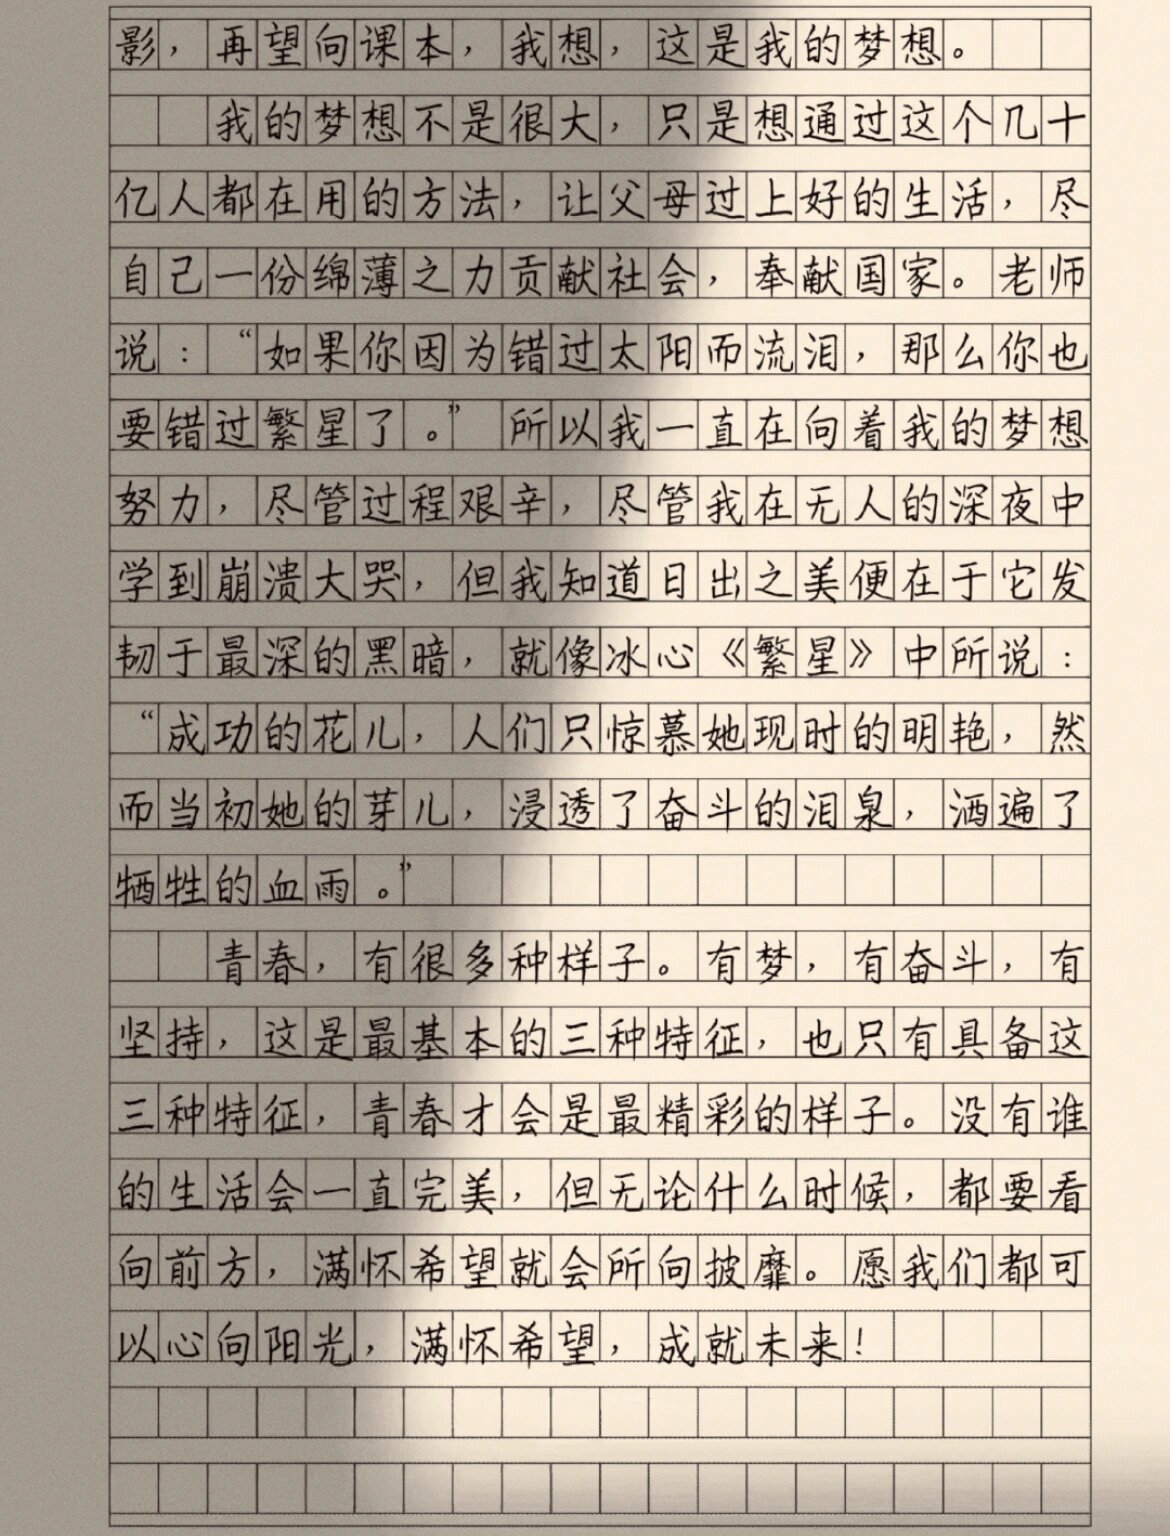 影，再望向课本，我想，这是我的梦想。
我的梦想不是很大，只是想通过这个几十
亿人都在用的方法，让父母过上好的生活，尽
自己一份绵薄之力贡献社会，奉献国家。老师
说：“如果你因为错过太阳而流泪，那么你也
要错过繁星了。”所以我一直在向着我的梦想
努力，尽管过程艰辛，尽管我在无人的深夜中
学到崩溃大哭，但我知道日出之美便在于它发
韧于最深的黑暗，就像冰心《繁星》中所说：
“成功的花儿，人们只惊慕她现时的明艳，然
而当初她的芽儿，浸透了奋斗的泪泉，洒遍了
牺牲的血雨。”
青春，有很多种样子。有梦，有奋斗，有
坚持，这是最基本的三种特征，也只有具备这
三种特征，青春才会是最精彩的样子。没有谁
的生活会一直完美，但无论什么时候，都要看
向前方，满怀希望就会所向披靡。愿我们都可
以心向阳光，满怀希望，成就未来！